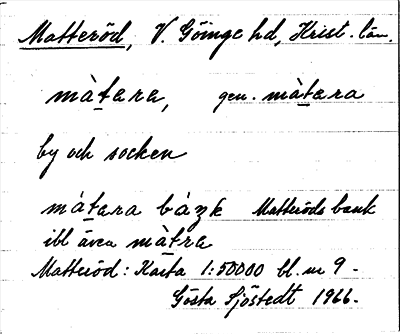 Matteröd, V. Göinge hd, Krist. län.
màtara, gen. màtara
by och socken
màtara bàŋk Matteröds bank
ibl även màtra
Matteröd: Karta 1:50000 bl. nr 9.
Gösta Sjöstedt 1966.